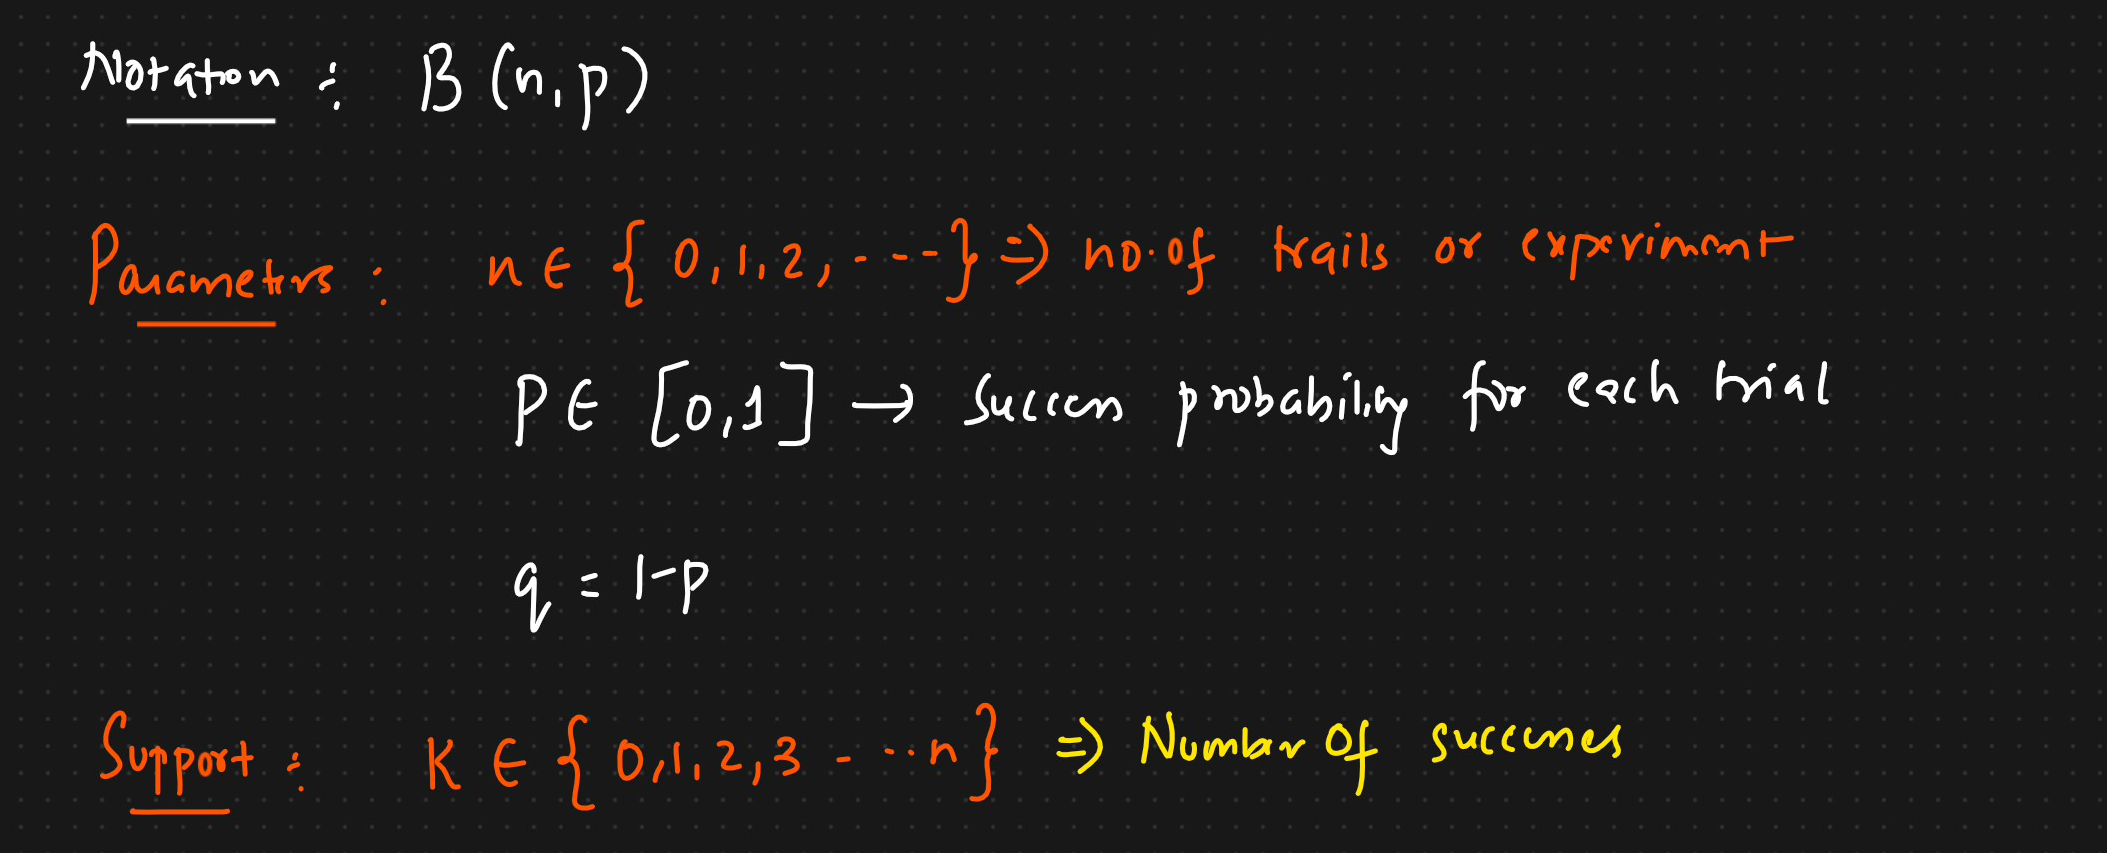 Notation : B (n, p)
Parameters : n ∈ { 0, 1, 2, ----} ⇒ no. of trails or experiment
P ∈ [0, 1] → Success probability for each trial
q = 1-p
Support : K ∈ { 0, 1, 2, 3 - -- n} ⇒ Number Of successes